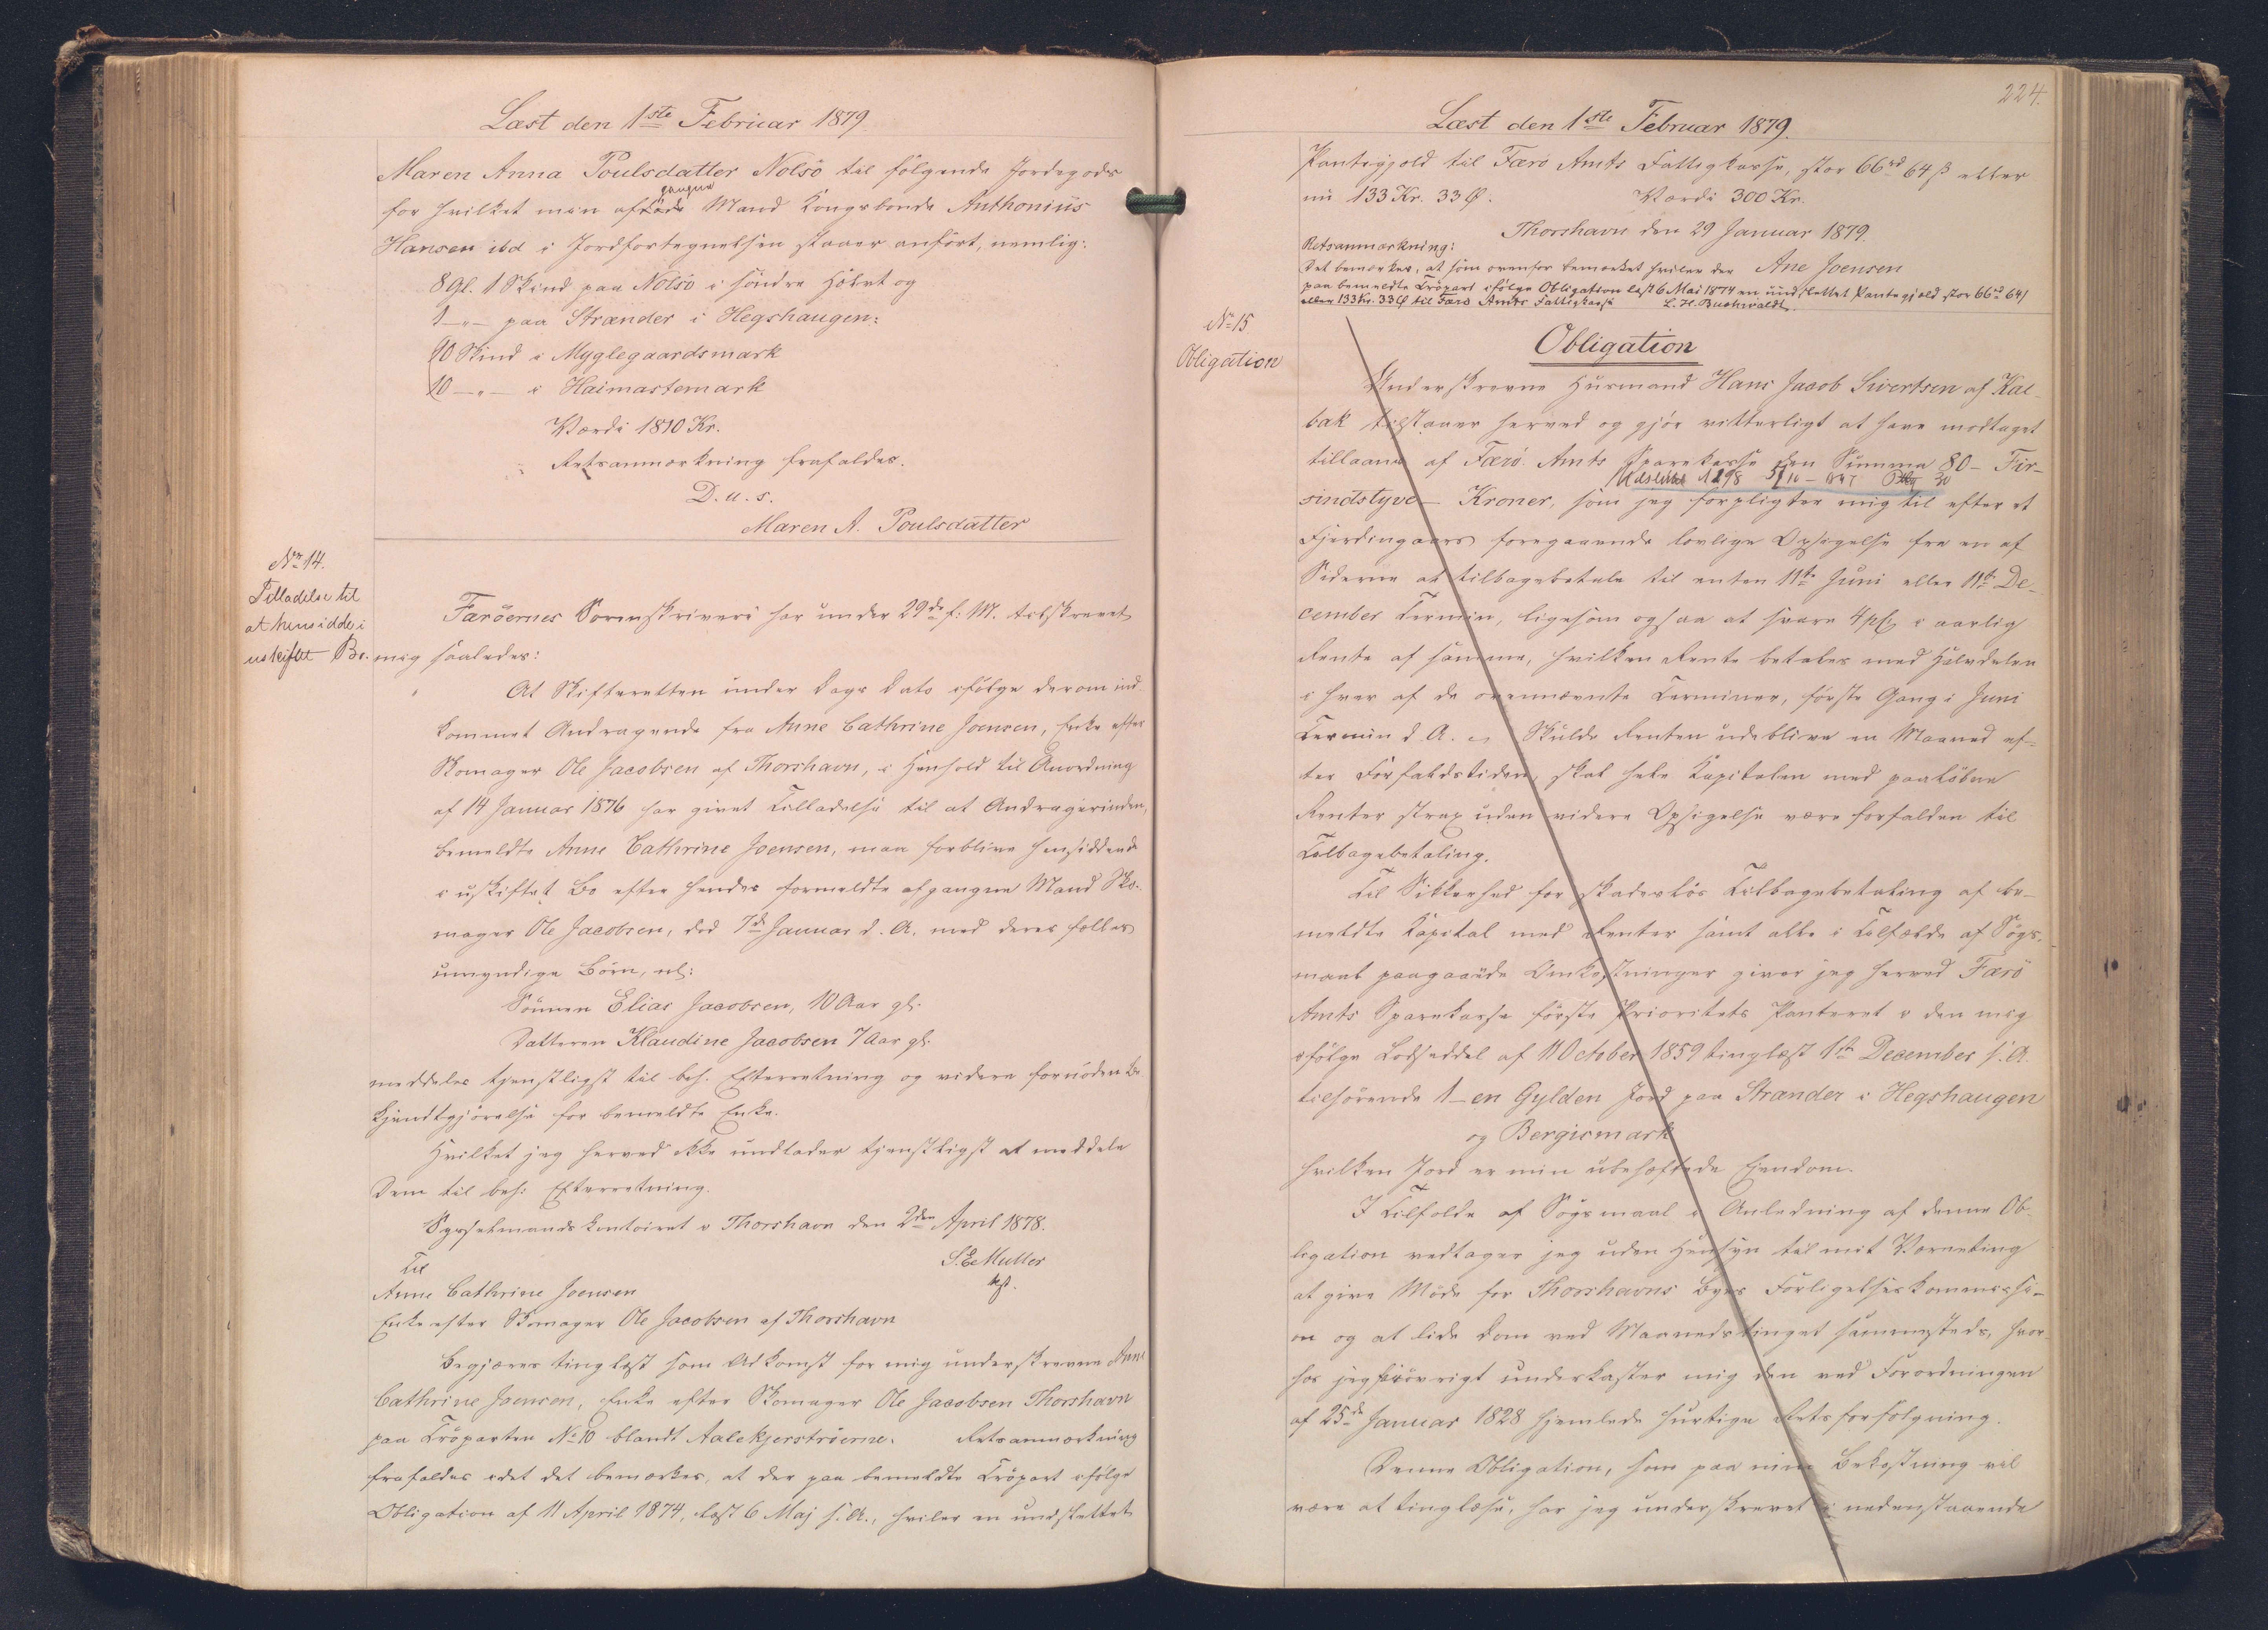 Læst den 1ste Februar 1879
Maren Anna Poulsdatter Nolsö til følgende Jordegods
gangne
for hvilket min af Mand Kongsbonde Anthonius
Hansen ibd i Jordfortegnelsen staaer anført, nemlig:
8 Gl. 1 Skind paa Nolsö i søndre Hølet og
1 -"- paa Strænder i Hegshaugen:
10 Skind i Myglegaardsmark
10 -"- i Haimastemark
Værdi 1810 Kr.
Retsanmærkning frafaldes.
D.u.s.
Maren A. Poulsdatter
No 14.
Tilladelse til
at hensidde i
uskiftet Bo.
Faröernes Sorenskriveri har under 29de f: M. tilskrevet
mig saaledes:
At Skifteretten under Dags Dato ifølge derom ind-
kommet Andragende fra Anne Cathrine Joensen, Enke efter
Skomager Ole Jacobsen af Thorshavn, i Henhold til Anordning
af 14 Januar 1876 har givet Tilladelse til at Andragerinden,
bemeldte Anne Cathrine Joensen, maa forblive hensiddende
i uskiftet Bo efter hendes formeldte afgangne Mand Sko-
mager Ole Jacobsen, død 7de Januar d. A. med deres fælles
umyndige Børn, nl:
Sønnen Elias Jacobsen, 10 Aar gl.
Datteren Klaudine Jacobsen 7 Aar gl.
meddeles tjenstligst til beh. Efterretning og videre fornøden Be-
kjendtgjørelse for bemeldte Enke.
Hvilket jeg herved ikke undlader tjenstligst at meddele
Dem til beh: Efterretning.
Sysselmandskontoiret i Thorshavn den 2den April 1878.
S. E. Muller
kst.
Til
Anne Cathrine Joensen
Enke efter Skomager Ole Jacobsen af Thorshavn
Begjæres tinglæst som Adkomst for mig underskrevne Anne
Cathrine Joensen, Enke efter Skomager Ole Jacobsen Thorshavn
paa Tröparten No 10 blandt Aalekjerströerne. Retsanmærkning
frafaldes idet det bemærkes, at der paa bemeldte Tröpart ifølge
Obligation af 11 April 1874, læst 6 Maj s. A., hviler en udslettet
224.
Læst den 1ste Februar 1879.
Pantegjæld til Færö Amts Fattigkasse, stor 66rd 64 ß eller
nu 133 Kr. 33 Ø. Værdi 300 Kr.
Thorshavn den 29 Januar 1879.
Ane Joensen
Retsanmærkning:
Det bemærkes, at som ovenfor bemærket hviler der
paa bemeldte Tröpart ifølge Obligation læst 6 Mai 1874 en uudslettet Pantegjæld stor 66rd 64 ß
eller 133 Kr. 33 Ø til Færö Amts Fattigkasse
L. H. Buchwaldt.
No 15
Obligation
Obligation
Underskrevne Husmand Hans Jacob Sivertsen af Kal-
bak tilstaaer herved og gjør vitterligt at have modtaget
tillaans af Færö Amts Sparekasse den Summa 80 - Fir-
Udslettet
sindstyve - Kroner, som jeg forpligter mig til efter et
Fjerdingaars foregaaende lovlige Opsigelse fra en af
Siderne at tilbagebetale til enten 11te Juni eller 11te De-
cember Termin, ligesom ogsaa at svare 4 pCt. i aarlig
Rente af samme, hvilken Rente betales med Halvdelen
i hver af de ovennævnte Terminer, første Gang i Juni
Termin d. A. Skulde Renten udeblive en Maaned ef-
ter Forfaldstiden, skal hele Kapitalen med paaløbne
Renter strax uden videre Opsigelse være forfalden til
Tilbagebetaling.
Til Sikkerhed for skadesløs Tilbagebetaling af be-
meldte Kapital med Renter samt alle i Tilfælde af Søgs-
maal paagaaende Omkostninger giver jeg herved Færö
Amts Sparekasse første Prioritets Panteret i den mig
ifølge Lodseddel af 11 October 1859 tinglæst 1ste December s. A.
tilhørende 1 - en Gylden Jord paa Strænder i Hegshaugen
og Bergismark
hvilken Jord er min ubehæftede Eiendom.
I Tilfælde af Søgsmaal i Anledning af denne Ob-
ligation vedtager jeg uden Hensyn til mit Verneting
at give Møde for Thorshavns Byes Forligelseskommissi-
on og at lide Dom ved Maanedstinget sammesteds, hvor-
hos jeg forøvrigt underkaster mig den ved Forordningen
af 25de Januar 1828 hjemlede hurtige Retsforfølgning.
Denne Obligation, som paa min Bekostning vil
være at tinglæse, har jeg underskrevet i nedenstaaende